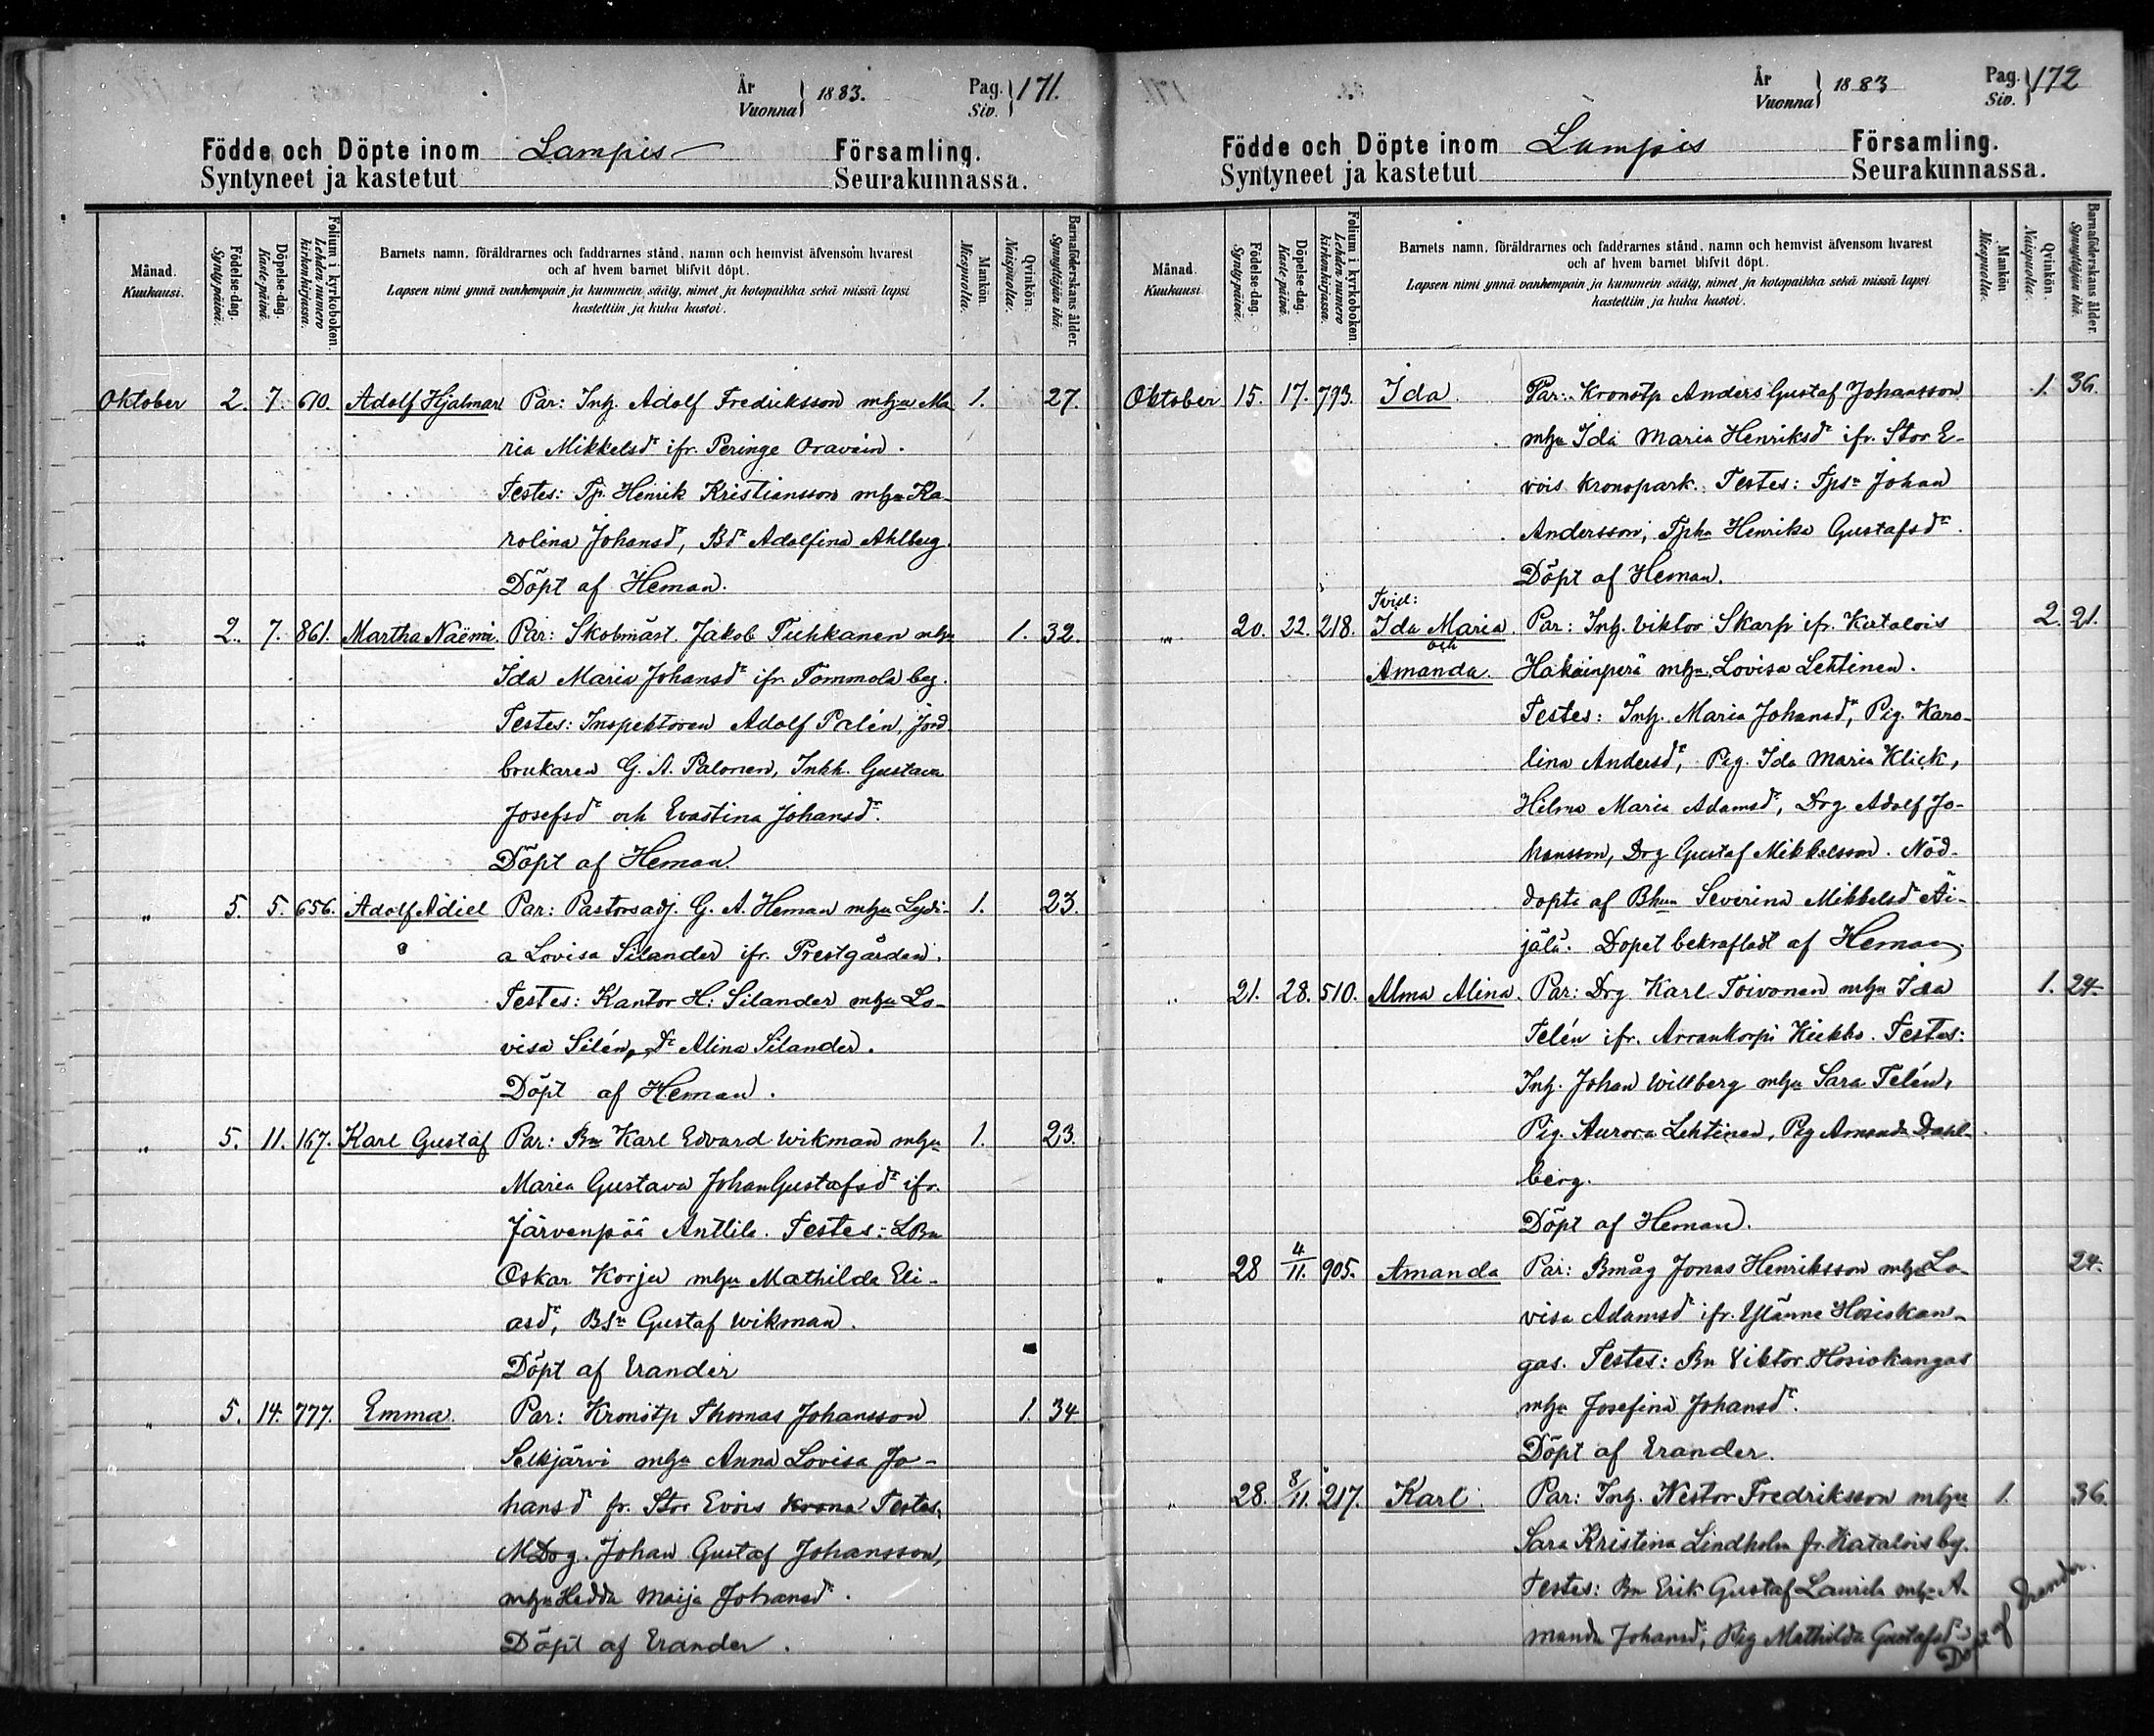 År
Vuonna
1883.
Pag.
Siv.
171.
Födde och Döpte inom Lampis Församling.
Syntyneet ja kastetut Seurakunnassa.
Månad.
Kuukausi.
Födelse-dag.
Synty-päivä.
Döpelse-dag.
Kaste-päivä.
Folium i kyrkoboken.
Lehden numero kirkonkirjassa.
Barnets namn, föräldrarnes och faddrarnes stånd, namn och hemvist äfvensom hvarest
och af hvem barnet blifvit döpt.
Lapsen nimi ynnä vanhempain ja kummein sääty, nimet ja kotopaikka sekä missä lapsi
kastettiin ja kuka kastoi.
Mankön.
Miespuolta.
Qvinkön.
Naispuolta.
Barnaföderskans ålder.
Synnyttäjän ikä.
Oktober 2. 7. 610. Adolf Hjalmar Par: Inh. Adolf Fredriksson mhu Ma 1. 27.
ria Mikkelsdr ifr. Peringe Oravain.
Testes: Tp. Henrik Kristiansson mhu Ka-
rolina Johansdr, Bdr Adolfina Ahlberg.
Döpt af Heman.
" 2. 7. 861. Martha Naëmi. Par: Skolmäst. Jakob Tuhkanen mhu 1. 32.
Ida Maria Johansdr ifr. Tommola beg.
Testes: Inspektoren Adolf Palén, Jord
brukaren G. A. Palonen, Inhh. Gustava
Josefsdr och Evastina Johansdr.
Döpt af Heman.
" 5. 5. 656. Adolf Adiel Par: Pastorsadj. G. A. Heman mhu Lydi- 1. 23.
a Lovisa Silander ifr. Prestgården.
Testes: Kantor H. Silander mhu Lo-
visa Silén, Dr Alina Silander.
Döpt af Heman.
" 5. 11. 167. Karl Gustaf Par: Bn Karl Edvard Wikman mhu 1. 23.
Maria Gustava JohanGustafsdr ifr.
Järvenpää Anttila. Testes: LBn
Oskar Korju mhu Mathilda Eli-
asdr, BSn Gustaf Wikman.
Döpt af Erander
" 5. 14. 777. Emma. Par: Kronotp Thomas Johansson 1. 34
Selkjärvi mhu Anna Lovisa Jo-
hansdr fr. Stor Evois Krono Testes,
MDog. Johan Gustaf Johansson,
mhu Hedda Maija Johansdr.
Döpt af Erander.
År
Vuonna
1883
Pag.
Siv.
172
Födde och Döpte inom Lampis Församling.
Syntyneet ja kastetut Seurakunnassa.
Månad.
Kuukausi
Födelse-dag.
Synty-päivä.
Döpelse-dag.
Kaste-päivä.
Folium i kyrkoboken.
Lehden numero kirkonkirjassa.
Barnets namn, föräldrarnes och faddrarnes stånd, namn och hemvist äfvensom hvarest
och af hvem barnet blifvit döpt.
Lapsen nimi ynnä vanhempain ja kummein sääty, nimet ja kotopaikka sekä missä lapsi
kastettiin ja kuka kastoi.
Mankön
Miespuolta.
Qvinkön.
Naispuolta.
Barnaföderskans ålder.
Synnyttäjän ikä.
Oktober 15. 17. 793. Ida. Par: Kronotp Anders Gustaf Johansson 1. 36.
mhu Ida Maria Henriksdr ifr. Stor E-
vois kronopark. Testes: Tpsn Johan
Andersson, Tphu Henrika Gustafsdr.
Döpt af Heman.
Tvill:
" 20. 22. 218. Ida Maria. Par: Inh. Viktor Skarp ifr. Katalois 2. 21.
och
Amanda. Hakoinperä mhu Lovisa Lehtinen.
Testes: Inh. Maria Johansdr, Pig. Karo-
lina Andersdr, Pig. Ida Maria Klick,
Hilma Maria Adamsdr, Drg Adolf Jo-
hansson, Drg Gustaf Mikkelsson. Nöd-
döpta af Bhun Severina Mikkelsdr Äi-
jälä. Dopet bekräftadt af Heman.
" 21. 28. 510. Alma Alina. Par: Drg Karl Toivonen mhu Ida 1. 24.
Telén ifr. Arrankorpi Kiekko. Testes:
Inh. Johan Willberg mhu Sara Telén,
Pig. Aurora Lehtinen, Pig Amanda Dahl-
berg.
Döpt af Heman.
" 28 4/11. 905. Amanda Par: Bmåg Jonas Henriksson mhu Lo- 24.
visa Adamsdr ifr. Ylänne Hosiokan-
gas. Testes: Bn Viktor Hosiokangas
mhu Josefina Johansdr.
Döpt af Erander.
" 28. 8/11. 217. Karl. Par: Inh. Nestor Fredriksson mhu 1. 36.
Sara Kristina Lindholm fr. Katalois by.
Testes: Bn Erik Gustaf Laurila mhu A-
manda Johansdr, Pig Mathilda Gustafsdr.
Döpt af Erander.